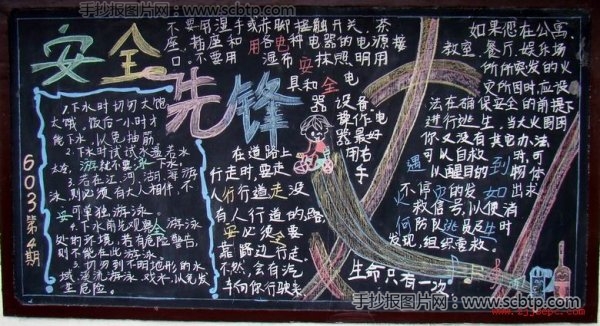 手抄报图片网----www.scbtp.com
安全
先锋
603第4期
1.下水时切勿太饱
太饿,饭后一小时才
能下水,以免抽筋
2.下水时试试水温若水
太冷,就不要下水
3.若在江、河、湖、海游
泳,则必须有大人相伴,不
可单独游泳。
4.下水前先观察游泳
处的环境,若有危险警告,
则不能在此游泳。
5.切勿到不明地形的水
不要用湿手或赤脚接触开关、茶
座、插座和各种电器的电源接
口。不要用湿布抹照明用
具和
器设备。
操作电
器最好
用右
手
在道路上
行走时,要走
人行道,没
有人行道的路,
必须要
靠路边行走。
不然,会有汽
车向你行驶来
如果您在公寓、
教室、餐厅、娱乐场
所所突发的火
灾所困时应设
法在确保安全的前提下
进行逃生,当火围困
你又没有其它办法
可以自救时,可
以醒目的物体
不停的发出求
救信号,以便消
防队员及时
发现,组织营救。
遇到火灾如何逃生
生命只有一次
手抄报图片网----www.scbtp.com